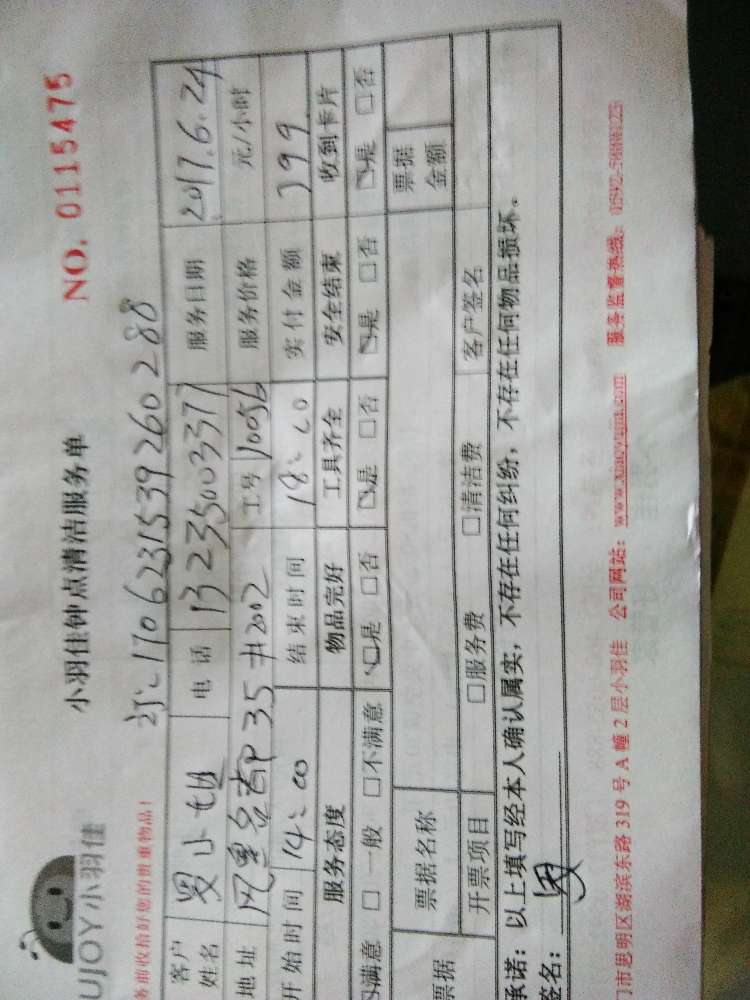 UJOY小羽佳
小羽佳钟点清洁服务单
NO. 0115475
1706231539260288
务前收拾好您的贵重物品!
客户姓名 电话 13235003377 服务日期 2017.6.24
地址 35#2002 工号 10056 服务价格 元/小时
开始时间 14:00 结束时间 18:00 实付金额 199
服务态度 物品完好 工具齐全 安全结束 收到卡片
满意 □一般 □不满意 □是 □否 □是 □否 □是 □否 □是 □否
票据 票据名称 票据金额
开票项目 □服务费 □清洁费 客户签名
承诺:以上填写经本人确认属实,不存在任何纠纷,不存在任何物品损坏。
签名:
门市思明区湖滨东路 319 号 A 幢 2 层小羽佳 公司网站: 服务监督热线: